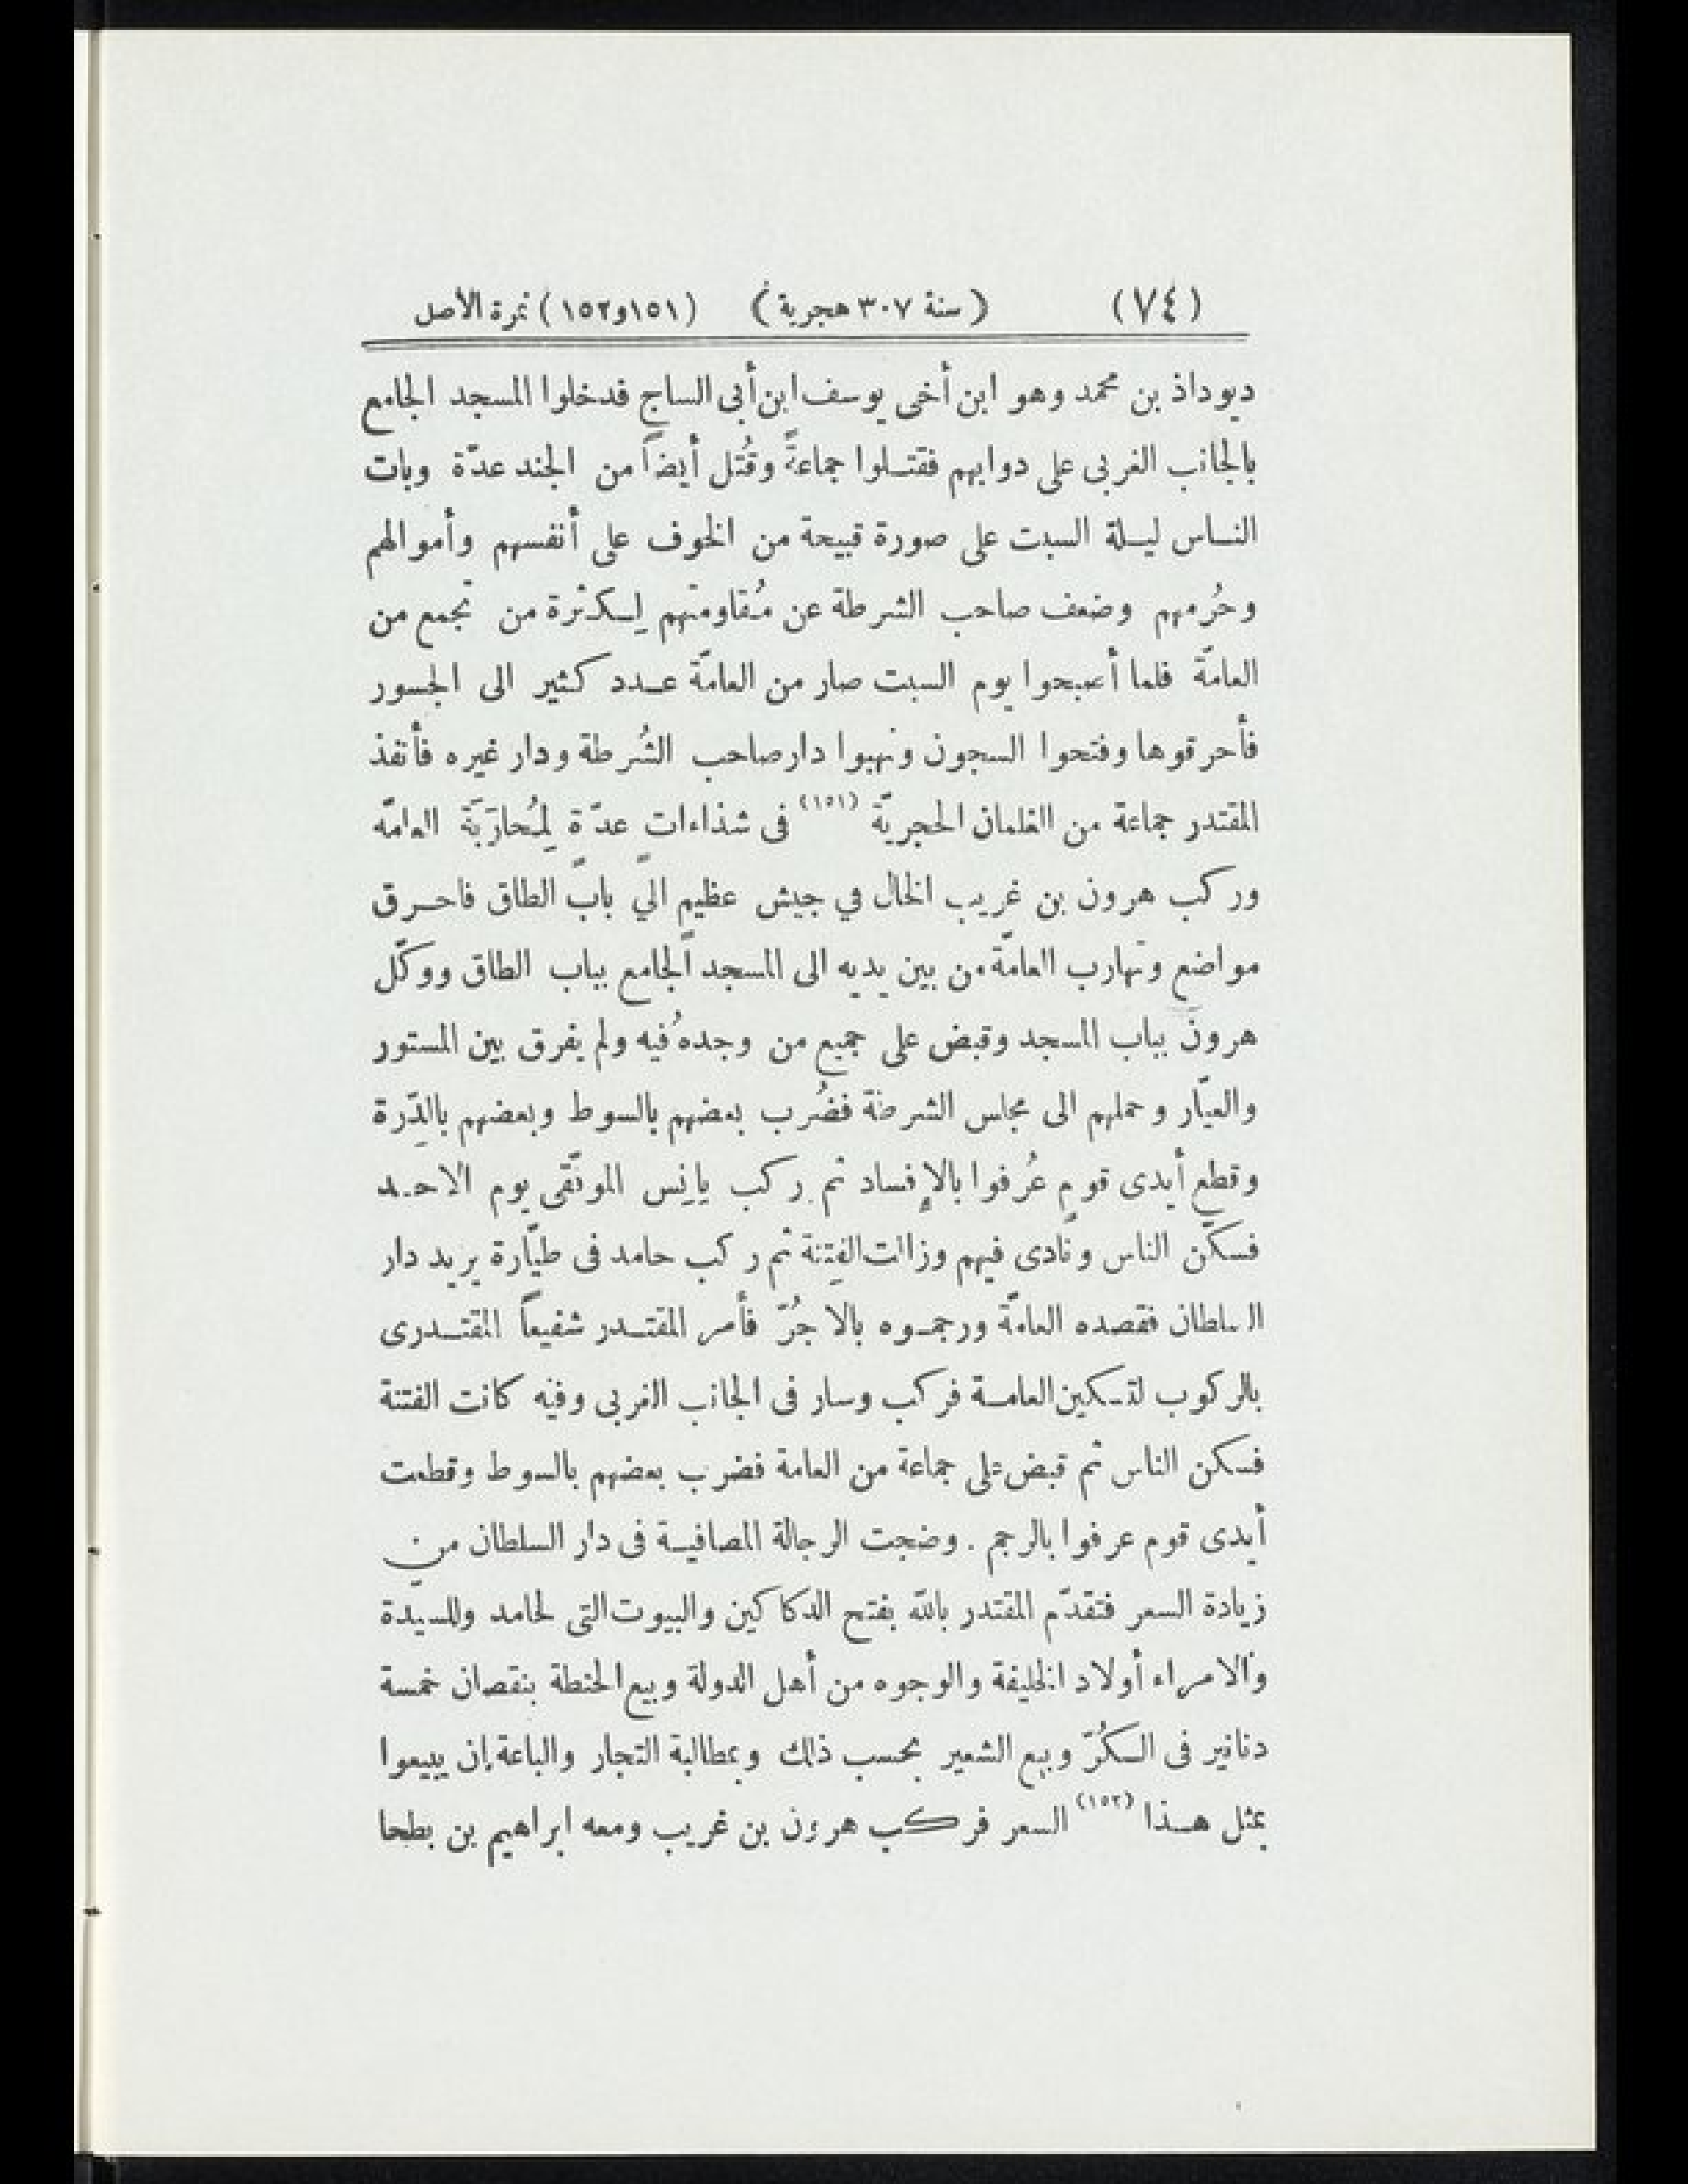 (٧٤) (سنة ٣٠٧ هجرية) (١٥١و١٥٢) نمرة الأصل
ديوداذ بن محمد وهو ابن أخى يوسف ابن أبى الساج فدخلوا المسجد الجامع
بالجانب الغربى على دوابهم فقتلوا جماعةً وقُتل أيضاً من الجند عدّة وبات
الناس ليلة السبت على صورة قبيحة من الخوف على أنفسهم وأموالهم
وحُرمهم وضعف صاحب الشرطة عن مُقاومتهم لِكثرة من تجمع من
العامّة فلما أصبحوا يوم السبت صار من العامّة عدد كثير الى الجسور
فأحرقوها وفتحوا السجون ونهبوا دار صاحب الشُرطة ودار غيره فأنفذ
المقتدر جماعة من الغلمان الحجريّة (١٥١) فى شذاءات عدّة لِمُحارَبَة العامّة
وركب هرون بن غريب الخال في جيش عظيم الي باب الطاق فاحرق
مواضع وتهارب العامّة من بين يديه الى المسجد الجامع بباب الطاق ووكّل
هرون بباب المسجد وقبض على جميع من وجدهُ فيه ولم يفرق بين المستور
والعيّار وحملهم الى مجلس الشرطة فضُرب بعضهم بالسوط وبعضهم بالدِّرة
وقطع أيدى قوم عُرفوا بالإفساد ثم ركب يانِس الموفّقى يوم الاحد
فسكّن الناس ونادى فيهم وزالت الفِتنة ثم ركب حامد فى طيّارة يريد دار
السلطان فقصده العامّة ورجموه بالاجُرّ فأمر المقتدر شفيعاً المقتدرى
بالركوب لتسكين العامة فركب وسار فى الجانب الغربى وفيه كانت الفتنة
فسكن الناس ثم قبض على جماعة من العامة فضرب بعضهم بالسوط وقطعت
أيدى قوم عرفوا بالرجم . وضجت الرجالة المصافية فى دار السلطان من
زيادة السعر فتقدّم المقتدر بالله بفتح الدكاكين والبيوت التى لحامد وللسيّدة
والامراء أولاد الخليفة والوجوه من أهل الدولة وبيع الحنطة بنقصان خمسة
دنانير فى الكُرّ وبيع الشعير بحسب ذلك وبمطالبة التجار والباعة إن يبيعوا
بمثل هذا (١٥٢) السعر فركب هرون بن غريب ومعه ابراهيم بن بطحا